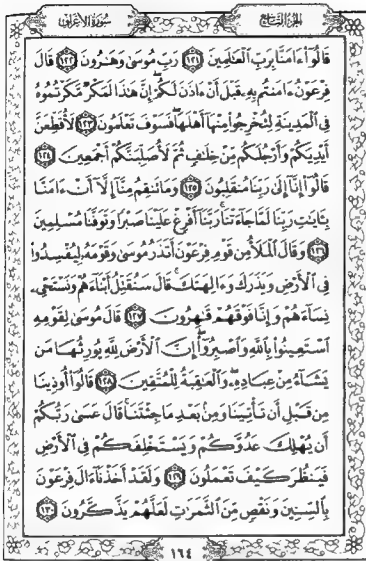 سُورَةُ الأَعْرَافِ
الجُزْءُ التَّاسِعُ
قَالُوٓاْ ءَامَنَّا بِرَبِّ ٱلْعَٰلَمِينَ ١٢١ رَبِّ مُوسَىٰ وَهَٰرُونَ ١٢٢ قَالَ
فِرْعَوْنُ ءَامَنتُم بِهِۦ قَبْلَ أَنْ ءَاذَنَ لَكُمْ إِنَّ هَٰذَا لَمَكْرٌ مَّكَرْتُمُوهُ
فِى ٱلْمَدِينَةِ لِتُخْرِجُواْ مِنْهَآ أَهْلَهَا فَسَوْفَ تَعْلَمُونَ ١٢٣ لَأُقَطِّعَنَّ
أَيْدِيَكُمْ وَأَرْجُلَكُم مِّنْ خِلَٰفٍ ثُمَّ لَأُصَلِّبَنَّكُمْ أَجْمَعِينَ ١٢٤
قَالُوٓاْ إِنَّآ إِلَىٰ رَبِّنَا مُنقَلِبُونَ ١٢٥ وَمَا تَنقِمُ مِنَّآ إِلَّآ أَنْ ءَامَنَّا
بِـَٔايَٰتِ رَبِّنَا لَمَّا جَآءَتْنَا رَبَّنَآ أَفْرِغْ عَلَيْنَا صَبْرًا وَتَوَفَّنَا مُسْلِمِينَ
١٢٦ وَقَالَ ٱلْمَلَأُ مِن قَوْمِ فِرْعَوْنَ أَتَذَرُ مُوسَىٰ وَقَوْمَهُۥ لِيُفْسِدُواْ
فِى ٱلْأَرْضِ وَيَذَرَكَ وَءَالِهَتَكَ قَالَ سَنُقَتِّلُ أَبْنَآءَهُمْ وَنَسْتَحْىِۦ
نِسَآءَهُمْ وَإِنَّا فَوْقَهُمْ قَٰهِرُونَ ١٢٧ قَالَ مُوسَىٰ لِقَوْمِهِ
ٱسْتَعِينُواْ بِٱللَّهِ وَٱصْبِرُوٓاْ إِنَّ ٱلْأَرْضَ لِلَّهِ يُورِثُهَا مَن
يَشَآءُ مِنْ عِبَادِهِۦ وَٱلْعَٰقِبَةُ لِلْمُتَّقِينَ ١٢٨ قَالُوٓاْ أُوذِينَا
مِن قَبْلِ أَن تَأْتِيَنَا وَمِنۢ بَعْدِ مَا جِئْتَنَا قَالَ عَسَىٰ رَبُّكُمْ
أَن يُهْلِكَ عَدُوَّكُمْ وَيَسْتَخْلِفَكُمْ فِى ٱلْأَرْضِ
فَيَنظُرَ كَيْفَ تَعْمَلُونَ ١٢٩ وَلَقَدْ أَخَذْنَآ ءَالَ فِرْعَوْنَ
بِٱلسِّنِينَ وَنَقْصٍ مِّنَ ٱلثَّمَرَٰتِ لَعَلَّهُمْ يَذَّكَّرُونَ ١٣٠
١٦٤